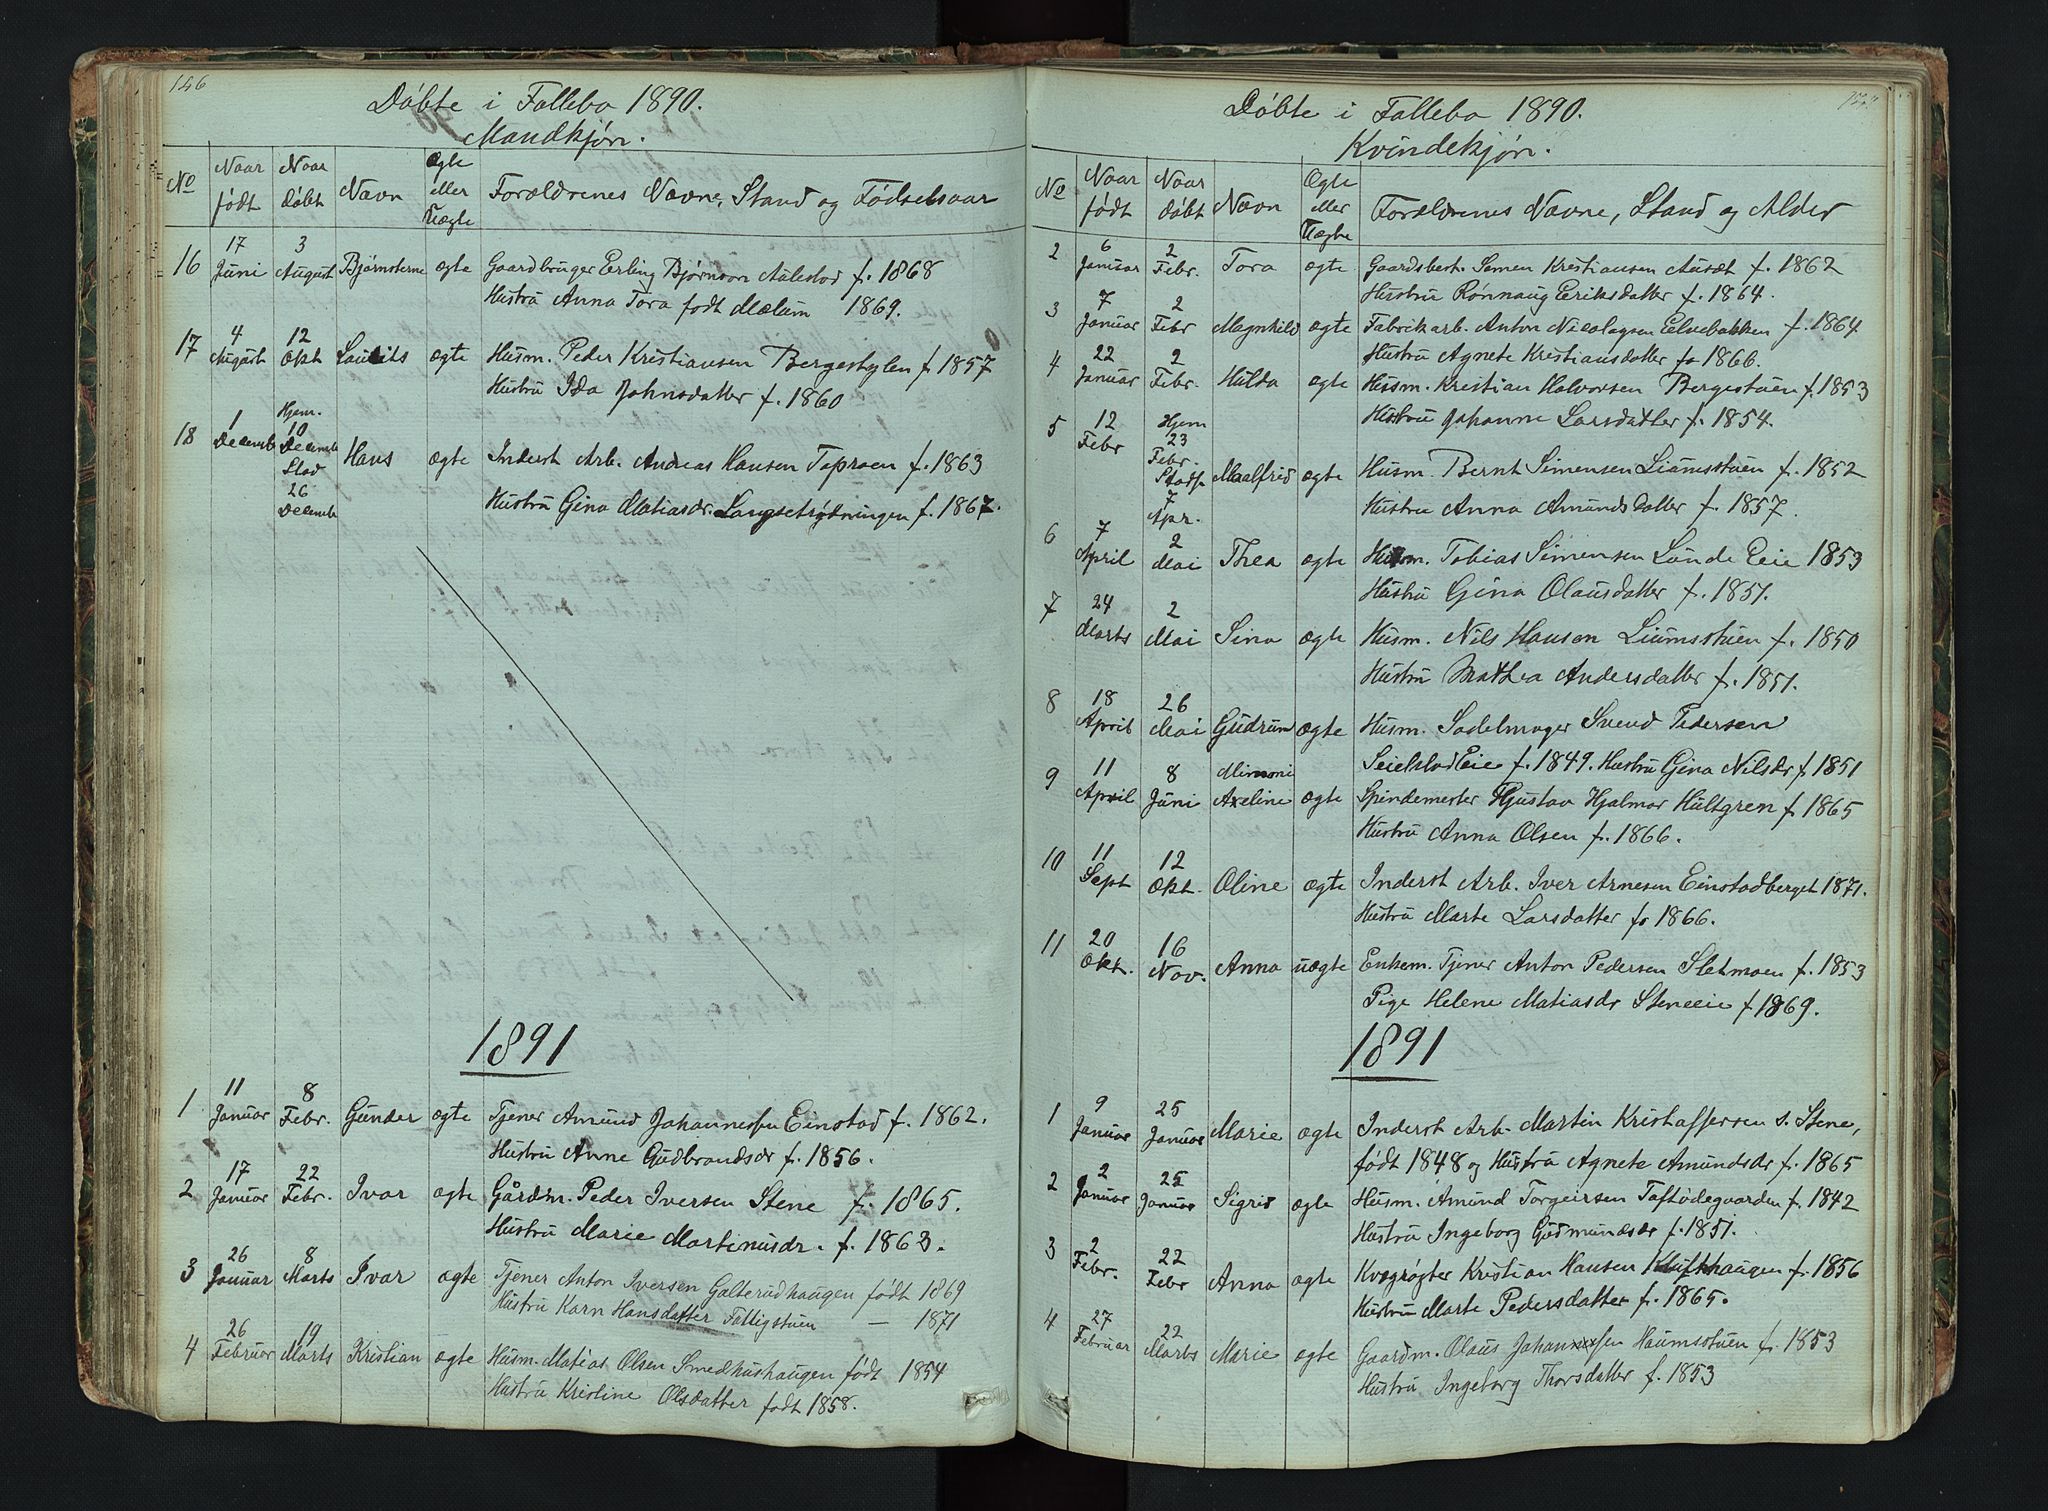 146
Døbte i Follebo 1890.
Mandkjøn.
No
Naar født
Naar døbt
Navn
Ægte eller Uægte
Forældrenes Navne, Stand og Fødselsaar
16 17 Juni 3 August Bjørnsterne ægte Gaardbruger Erling Bjørnson Aulestad f. 1868
Hustru Anna Tora født Mælum 1869.
17 4 August 12 Okt Laurits ægte Husm. Peder Kristiansen Bergestylen f. 1857
Hustru Ida Johnsdatter f. 1860
18 1 Decemb Hjem. 10 Decemb Stad 26 Decemb Hans ægte Inderst Arb. Andreas Hansen Toproen f. 1863
Hustru Gina Matiasdr. Langsetrydningen f. 1867.
1891
1 11 Januar 8 Febr. Gunder ægte Tjener Amund Johannessen Einstad f. 1862.
Hustru Anne Gudbrandsdr f. 1856.
2 17 Januar 22 Febr. Ivar ægte Gårdm. Peder Iversen Stene f. 1865.
Hustru Marie Martinusdr. f. 1863.
3 26 Januar 8 Marts Ivar ægte Tjener Anton Iversen Galterudhaugen født 1869
Hustru Karn Hansdatter Fattigstuen — 1871
4 26 Februar 19 Marts Kristian ægte Husm. Matias Olsen Smedhushaugen født 1854
Hustru Kristine Olsdatter født 1858.
Døbte i Follebo 1890.
Kvindekjøn.
No
Naar født
Naar døbt
Navn
Ægte eller Uægte
Forældrenes Navne, Stand og Alder
2 6 Januar 2 Febr. Tora ægte Gaardsbest. Simen Kristiansen Ausæt f. 1862
Hustru Rønnaug Eriksdatter f. 1864.
3 7 Januar 2 Febr Magnhild ægte Fabrikarb. Anton Nicolaysen Elvebakken f. 1864
Hustru Agnete Kristiansdatter f. 1866.
4 22 Januar 2 Febr. Hulda ægte Husm. Kristian Halvorsen Bergestuen f. 1853
Hustru Johanne Larsdatter f. 1854.
5 12 Febr Hjem 23 Febr. Stadf 7 Apr. Maalfrid ægte Husm. Bernt Simensen Liumsstuen f. 1852
Hustru Anna Amundsdatter f. 1857.
6 7 April 2 Mai Thea ægte Husm. Tobias Simensen Lunde Eie 1853
Hustru Gina Olausdatter f. 1851.
7 24 Marts 2 Mai Sina ægte Husm. Nils Hansen Liumsstuen f. 1850
Hustru Mathea Andersdatter f. 1851.
8 18 April 26 Mai Gudrun ægte Husm. Sadelmager Svend Pedersen
Seielstad Eie f. 1849. Hustru Gina Nilsdr f. 1851
9 11 April 8 Juni Mimmi Axeline ægte Spindemester Gustav Hjalmar Hultgren f. 1865
Hustru Anna Olsen f. 1866.
10 11 Sept 12 Okt. Oline ægte Inderst Arb. Iver Arnesen Einstadberget 1871.
Hustru Marte Larsdatter f. 1866.
11 20 Okt. 16 Nov. Anna uægte Enkem. Tjener Anton Pedersen Sletmoen f. 1853
Pige Helene Matiasdr Steneeie f. 1869.
1891
1 9 Januar 25 Januar Marie ægte Inderst Arb. Martin Kristoffersen s. Stene,
født 1848 og Hustru Agnete Amundsdr f. 1865
2 2 Januar 25 Januar Sigrid ægte Husm. Amund Torgeirsen Toftødegaarden f. 1842
Hustru Ingeborg Gudmundsdr f. 1851.
3 2 Febr. 22 Febr Anna ægte Kvægrøgter Kristian Hansen Klufthaugen f. 1856
Hustru Marte Pedersdatter f. 1865.
4 27 Februar 22 Marts Marie ægte Gaardm. Olaus Johannessen Haumsstuen f. 1853
Hustru Ingeborg Thorsdatter f. 1853